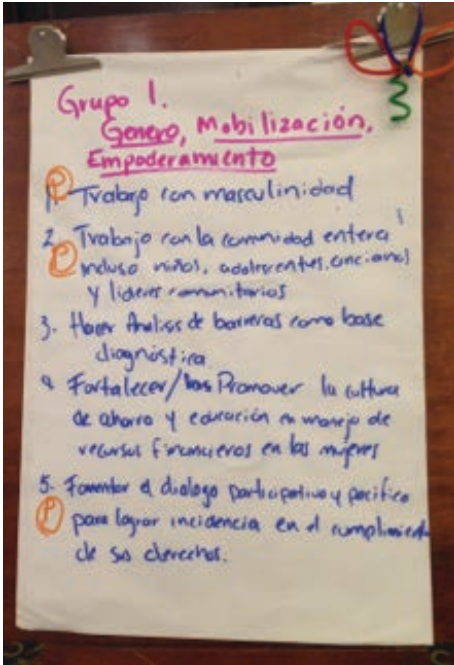 Grupo 1.
Genero, Mobilización,
Empoderamiento
P
1. Trabajo con masculinidad
2. Trabajo con la comunidad entera
P incluso niños, adolescentes, ancianos
y lideres comunitarios
3. Hacer Analisis de barreras como base
diagnóstica
4 Fortalecer/ Promover la cultura
de ahorro y educación en manejo de
recursos financieros en las mujeres
5. Fomentar el dialogo participativo y pacifico
P para lograr incidencia en el cumplimiento
de sus derechos.